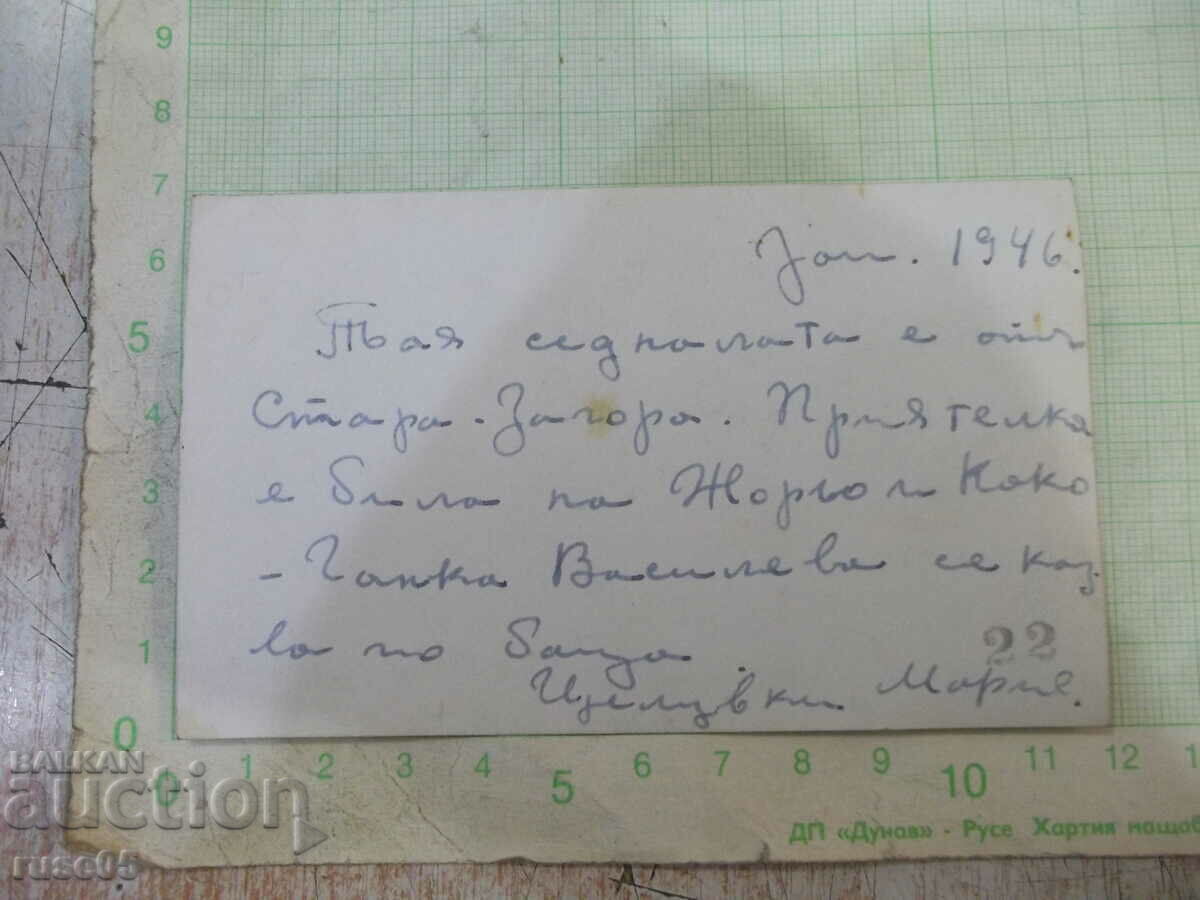 9
8
7
6
5
4
3
2
1
0
Jan. 1946.
Тъая седналата е отъ
Стара-Загора. Приятелка
е била на Жорьо и Коко
- Ганка Василева се каз-
ва по баща.
22
Целувки Мария.
0 1 2 3 4 5 6 7 8 9 10 11 12
ДП «Дунав» - Русе Хартия мащаб
BALKAN
auction
ruse05